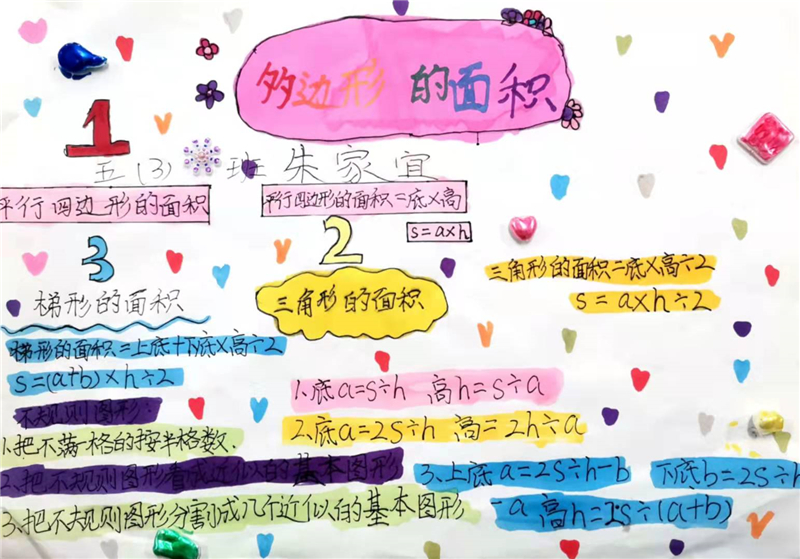 多边形的面积
1
五(3)班 朱家宜
平行四边形的面积
平行四边形的面积=底×高
s=a×h
2
三角形的面积
三角形的面积=底×高÷2
s=a×h÷2
3
梯形的面积
梯形的面积=上底+下底×高÷2
s=(a+b)×h÷2
不规则图形:
1.把不满一格的按半格数.
2.把不规则图形看成近似的基本图形
3.把不规则图形分割成几个近似的基本图形
1.底a=s÷h 高h=s÷a
2.底a=2s÷h 高=2h÷a
3.上底a=2s÷h-b 下底b=2s÷h
-a 高h=2s÷(a+b)